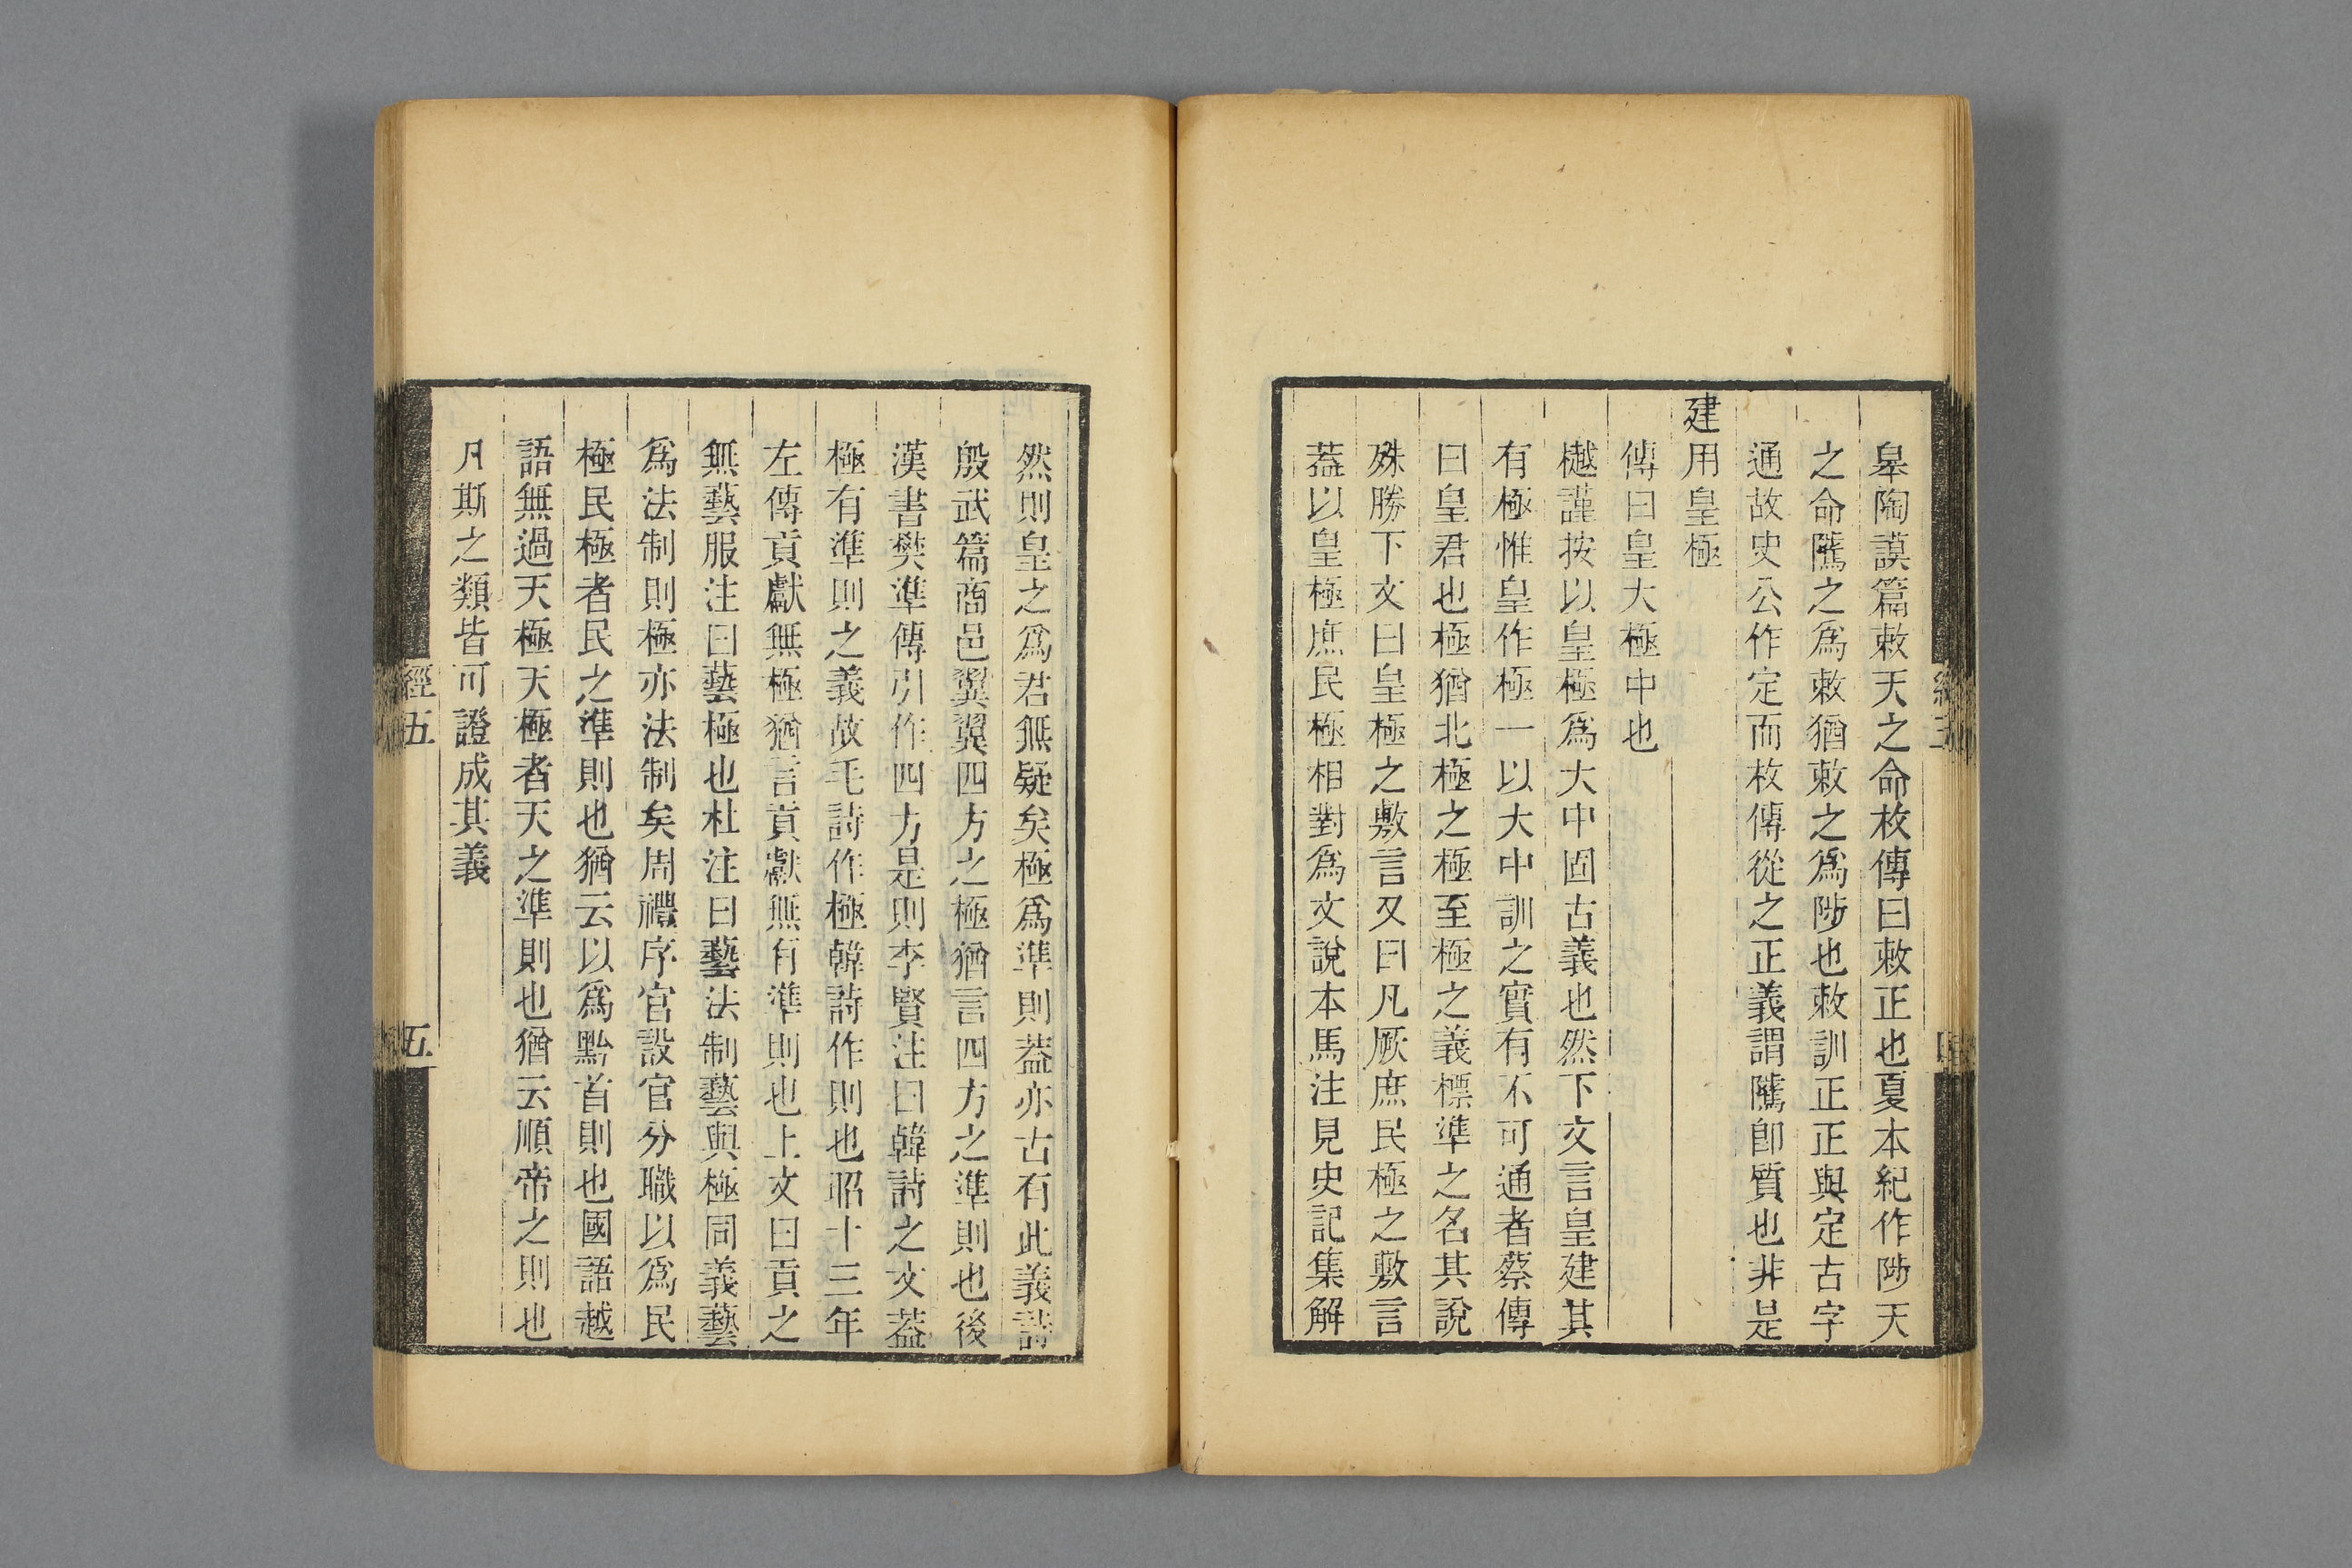 皋陶謨篇敕天之命枚傳曰敕正也夏本紀作陟天
之命隲之爲敕猶敕之爲陟也敕訓正正與定古字
通故史公作定而枚傳從之正義謂隲卽質也非是
建用皇極
傳曰皇大極中也
樾謹按以皇極爲大中固古義也然下文言皇建其
有極惟皇作極一以大中訓之實有不可通者蔡傳
曰皇君也極猶北極之極至極之義標準之名其說
殊勝下文曰皇極之敷言又曰凡厥庶民極之敷言
葢以皇極庶民極相對爲文說本馬注見史記集解
然則皇之爲君無疑矣極爲準則葢亦古有此義詩
殷武篇商邑翼翼四方之極猶言四方之準則也後
漢書樊準傳引作四方是則李賢注曰韓詩之文葢
極有準則之義故毛詩作極韓詩作則也昭十三年
左傳貢獻無極猶言貢獻無有準則也上文曰貢之
無藝服注曰藝極也杜注曰藝法制藝與極同義藝
爲法制則極亦法制矣周禮序官設官分職以爲民
極民極者民之準則也猶云以爲黔首則也國語越
語無過天極天極者天之準則也猶云順帝之則也
凡斯之類皆可證成其義
經五
五